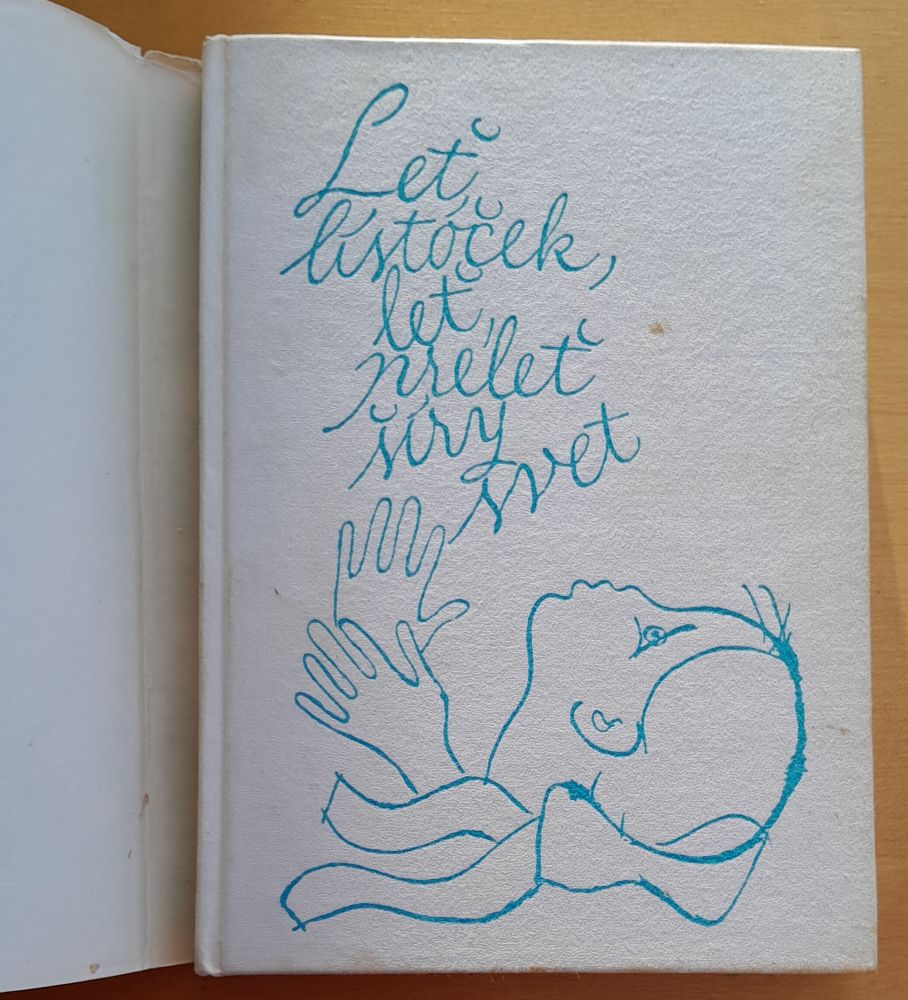 Leť,
lístoček,
leť,
preleť
šíry
svet